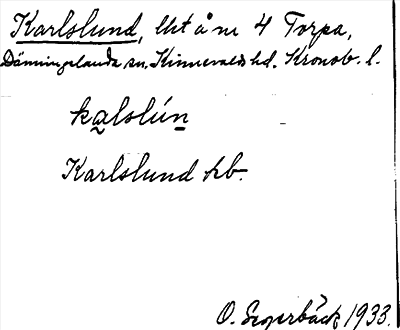 Karlslund, lht å nr 4 Torpa,
Dänningelanda sn, Kinnevalds hd. Kronob. l.
kalslún
Karlslund hb.
O. Segerbäck 1933.